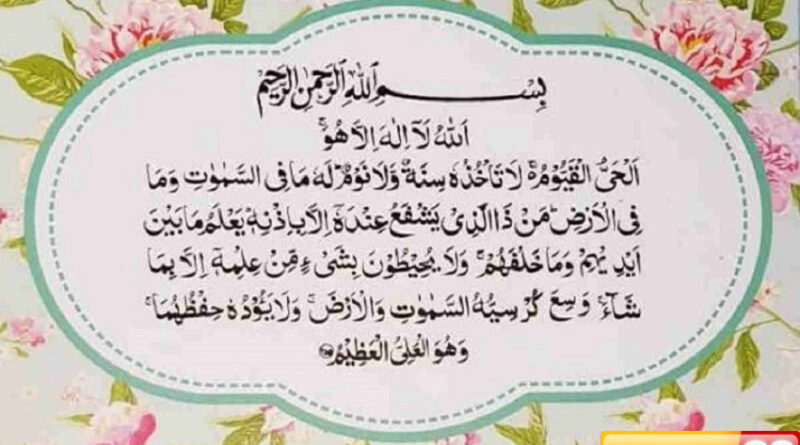 بِسْمِ اللهِ الرَّحْمٰنِ الرَّحِيْمِ
اَللّٰهُ لَآ اِلٰهَ اِلَّا هُوَ ۚ
اَلْحَیُّ الْقَيُّوْمُ ۚ لَا تَاْخُذُهٗ سِنَةٌ وَّلَا نَوْمٌ ؕ لَهٗ مَا فِی السَّمٰوٰتِ وَمَا
فِی الْاَرْضِ ؕ مَنْ ذَا الَّذِیْ يَشْفَعُ عِنْدَهٗۤ اِلَّا بِاِذْنِهٖ ؕ يَعْلَمُ مَا بَيْنَ
اَيْدِيْهِمْ وَمَا خَلْفَهُمْ ۚ وَلَا يُحِيْطُوْنَ بِشَیْءٍ مِّنْ عِلْمِهٖۤ اِلَّا بِمَا
شَآءَ ۚ وَسِعَ كُرْسِيُّهُ السَّمٰوٰتِ وَالْاَرْضَ ۚ وَلَا يَئُوْدُهٗ حِفْظُهُمَا ۚ
وَهُوَ الْعَلِیُّ الْعَظِيْمُ